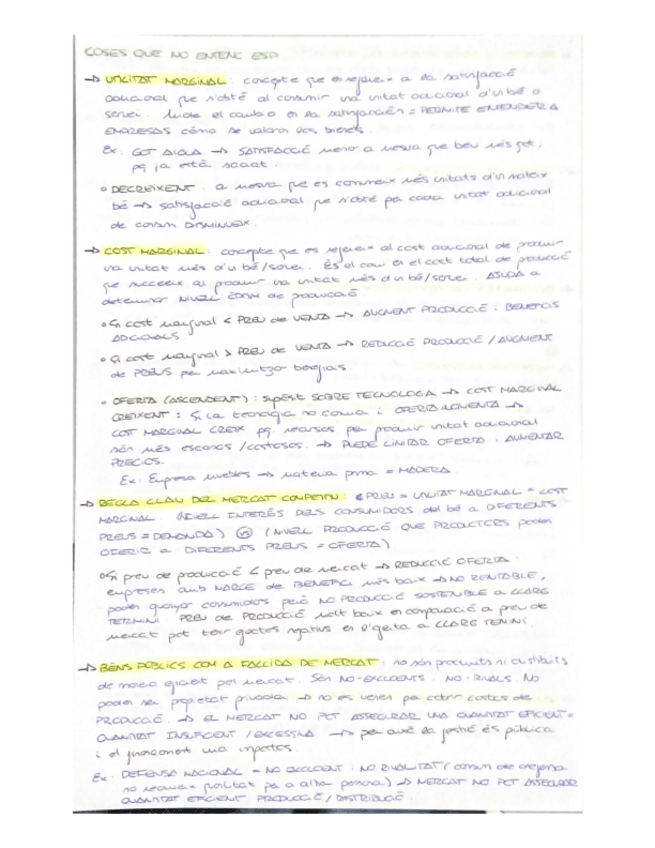 COSES QUE NO ENTENC ESP
→ UTILITAT MARGINAL: concepte que es refereix a la satisfacció
addicional que s'obté al consumir una unitat addicional d'un bé o
servei. Mide el cambio en la satisfacción = PERMITE ENTENDER A
EMPRESAS cómo se valora los bienes.
Ex: GOT AIGUA → SATISFACCIÓ menor a mesura que beu més got,
pq ja està saciat.
◦ DECREIXENT: a mesura que es consumeix més unitats d'un mateix
bé → satisfacció addicional que s'obté per cada unitat addicional
de consum DISMINUEIX.
→ COST MARGINAL: concepte que es refereix al cost addicional de produir
una unitat més d'un bé/servei. És el canvi en el cost total de producció
que succeeix al produir una unitat més d'un bé/servei. AJUDA a
determinar NIVELL de producció.
◦ Si cost marginal < PREU de VENTA → AUGMENT PRODUCCIÓ i BENEFICIS
ADICIONALS
◦ Si cost marginal > PREU de VENTA → REDUCCIÓ PRODUCCIÓ / AUGMENT
de PREUS per maximitzar
◦ OFERTA (ASCENDENT): supòsit SOBRE TECNOLOGIA → COST MARGINAL
CREIXENT: Si la tecnologia no canvia i OFERTA AUMENTA →
COST MARGINAL CREIX pq recursos per produir unitat addicional
són més escasos /costosos. → PUEDE LIMITAR OFERTA i AUMENTAR
PRECIOS.
Ex: Empresa muebles → materia prima = MADERA.
→ REGLA CLAU DEL MERCAT COMPETITIU: PREU = UTILITAT MARGINAL = COST
MARGINAL. (NIVELL INTERÉS DELS CONSUMIDORS del bé a DIFERENTS
PREUS = DEMANDA) VS (NIVELL PRODUCCIÓ QUE PRODUCTORS poden
OFERIR a DIFERENTS PREUS = OFERTA)
◦ Si preu de producció < preu de mercat → REDUCCIÓ OFERTA
empreses amb MARGE de BENEFICI més baix → NO RENTABLE,
poden guanyar consumidors però NO PRODUCCIÓ SOSTENIBLE a LLARG
TERMINI. PREU de PRODUCCIÓ molt baix en comparació a preu de
mercat pot tenir efectes negatius en l'oferta a LLARG TERMINI.
→ BÉNS PÚBLICS COM A FALLIDA DE MERCAT: no són produits ni distribuits
de manera eficient pel mercat. Són NO-EXCLOENTS i NO-RIVALS. No
poden ser propietat privada → no es venen per cobrir costos de
PRODUCCIÓ. → EL MERCAT NO POT ASSEGURAR UNA QUANTITAT EFICIENT =
QUANTITAT INSUFICIENT / EXCESSIVA → per què la gestió és pública
i el finançament via impostos.
Ex: DEFENSA NACIONAL = NO EXCLOENT i NO RIVALITAT (consum de
no redueix per a altra persona) → MERCAT NO POT ASSEGURAR
QUANTITAT EFICIENT PRODUCCIÓ / DISTRIBUCIÓ.